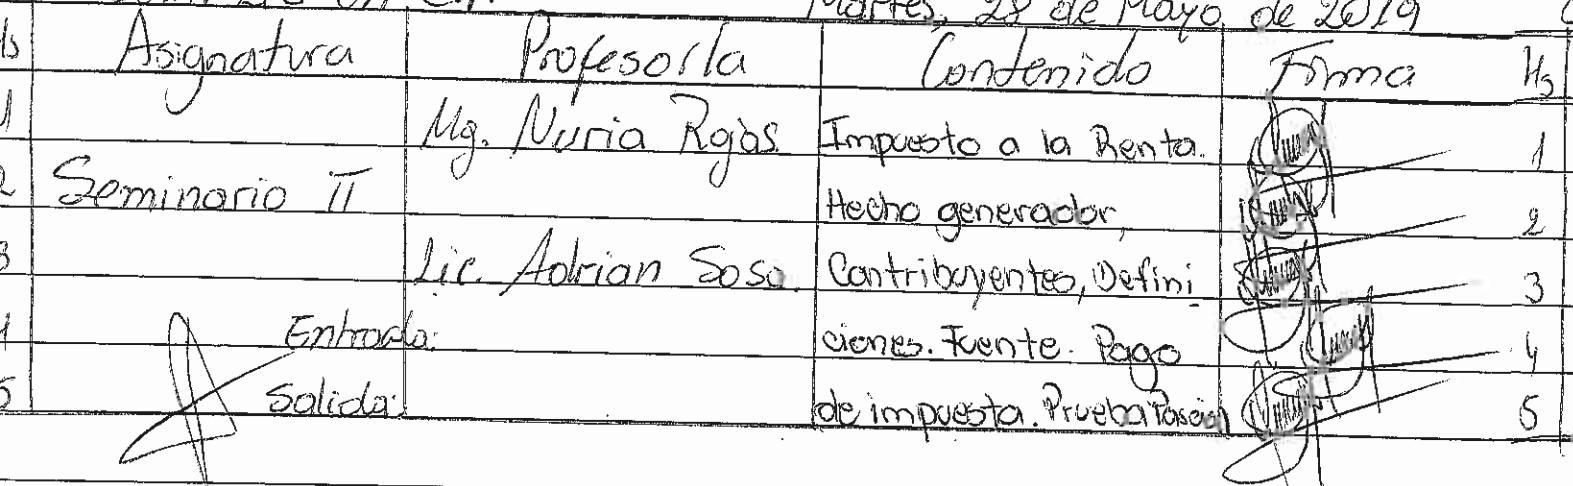 Martes, 28 de Mayo de 2019
Hs Asignatura Profesor/a Contenido Firma Hs
1 Mg. Nuria Rojas Impuesto a la Renta. 1
2 Seminario II Hecho generador, 2
3 Lic. Adrian Sosa. Contribuyentes, Defini 3
4 Entrada: ciones. Fuente. Pago 4
5 Salida: de impuesto. Prueba 5